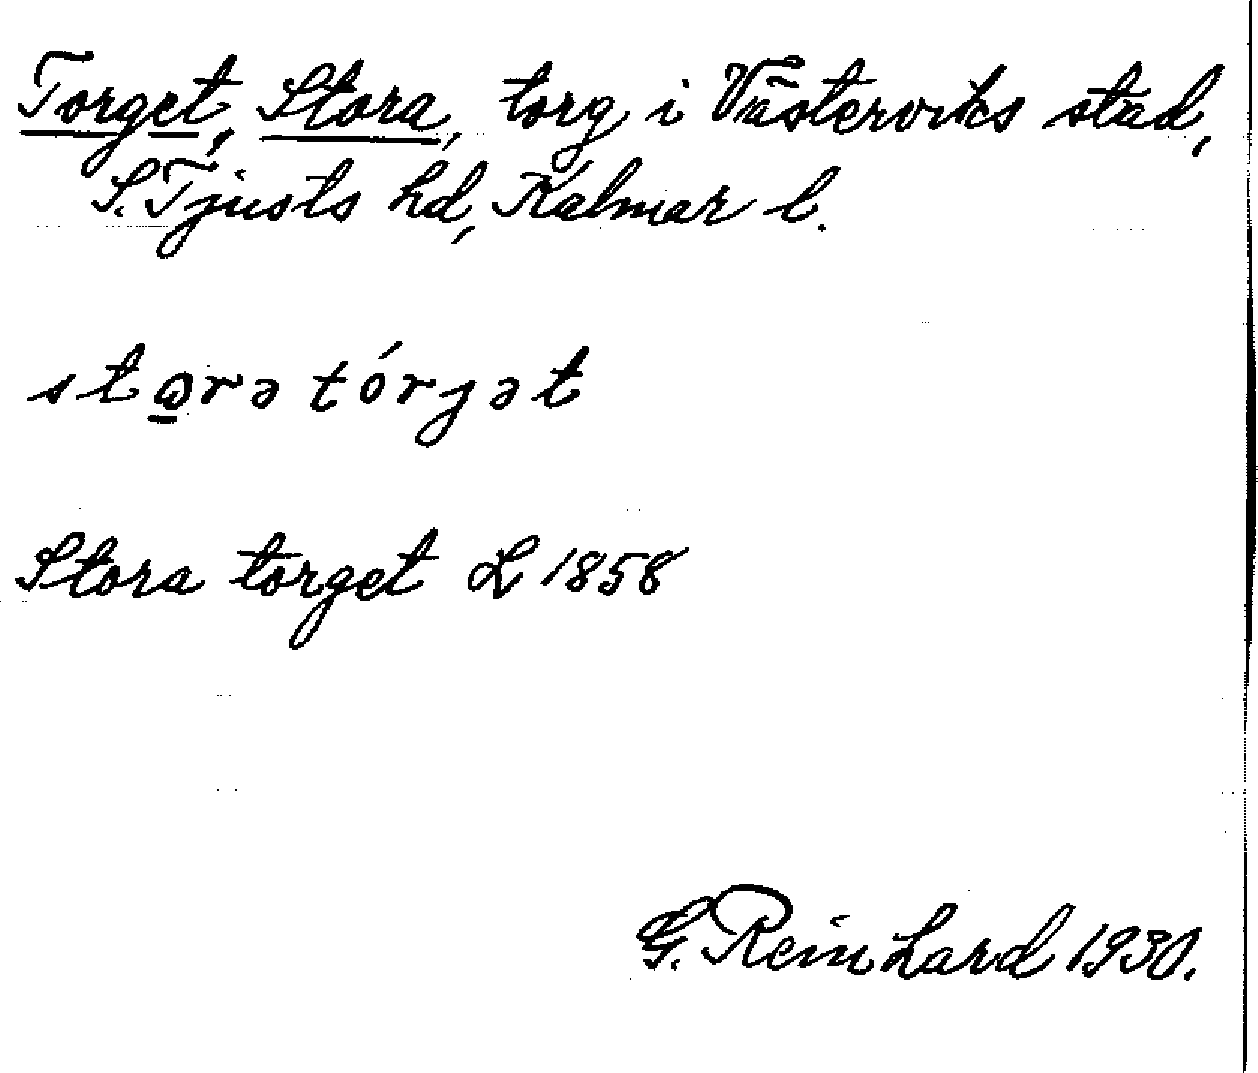 Torget, Stora, torg i Västerviks stad,
S. Tjusts hd, Kalmar l.
stω̲rə tórjət
Stora torget L 1858
G. Reinhard 1930.